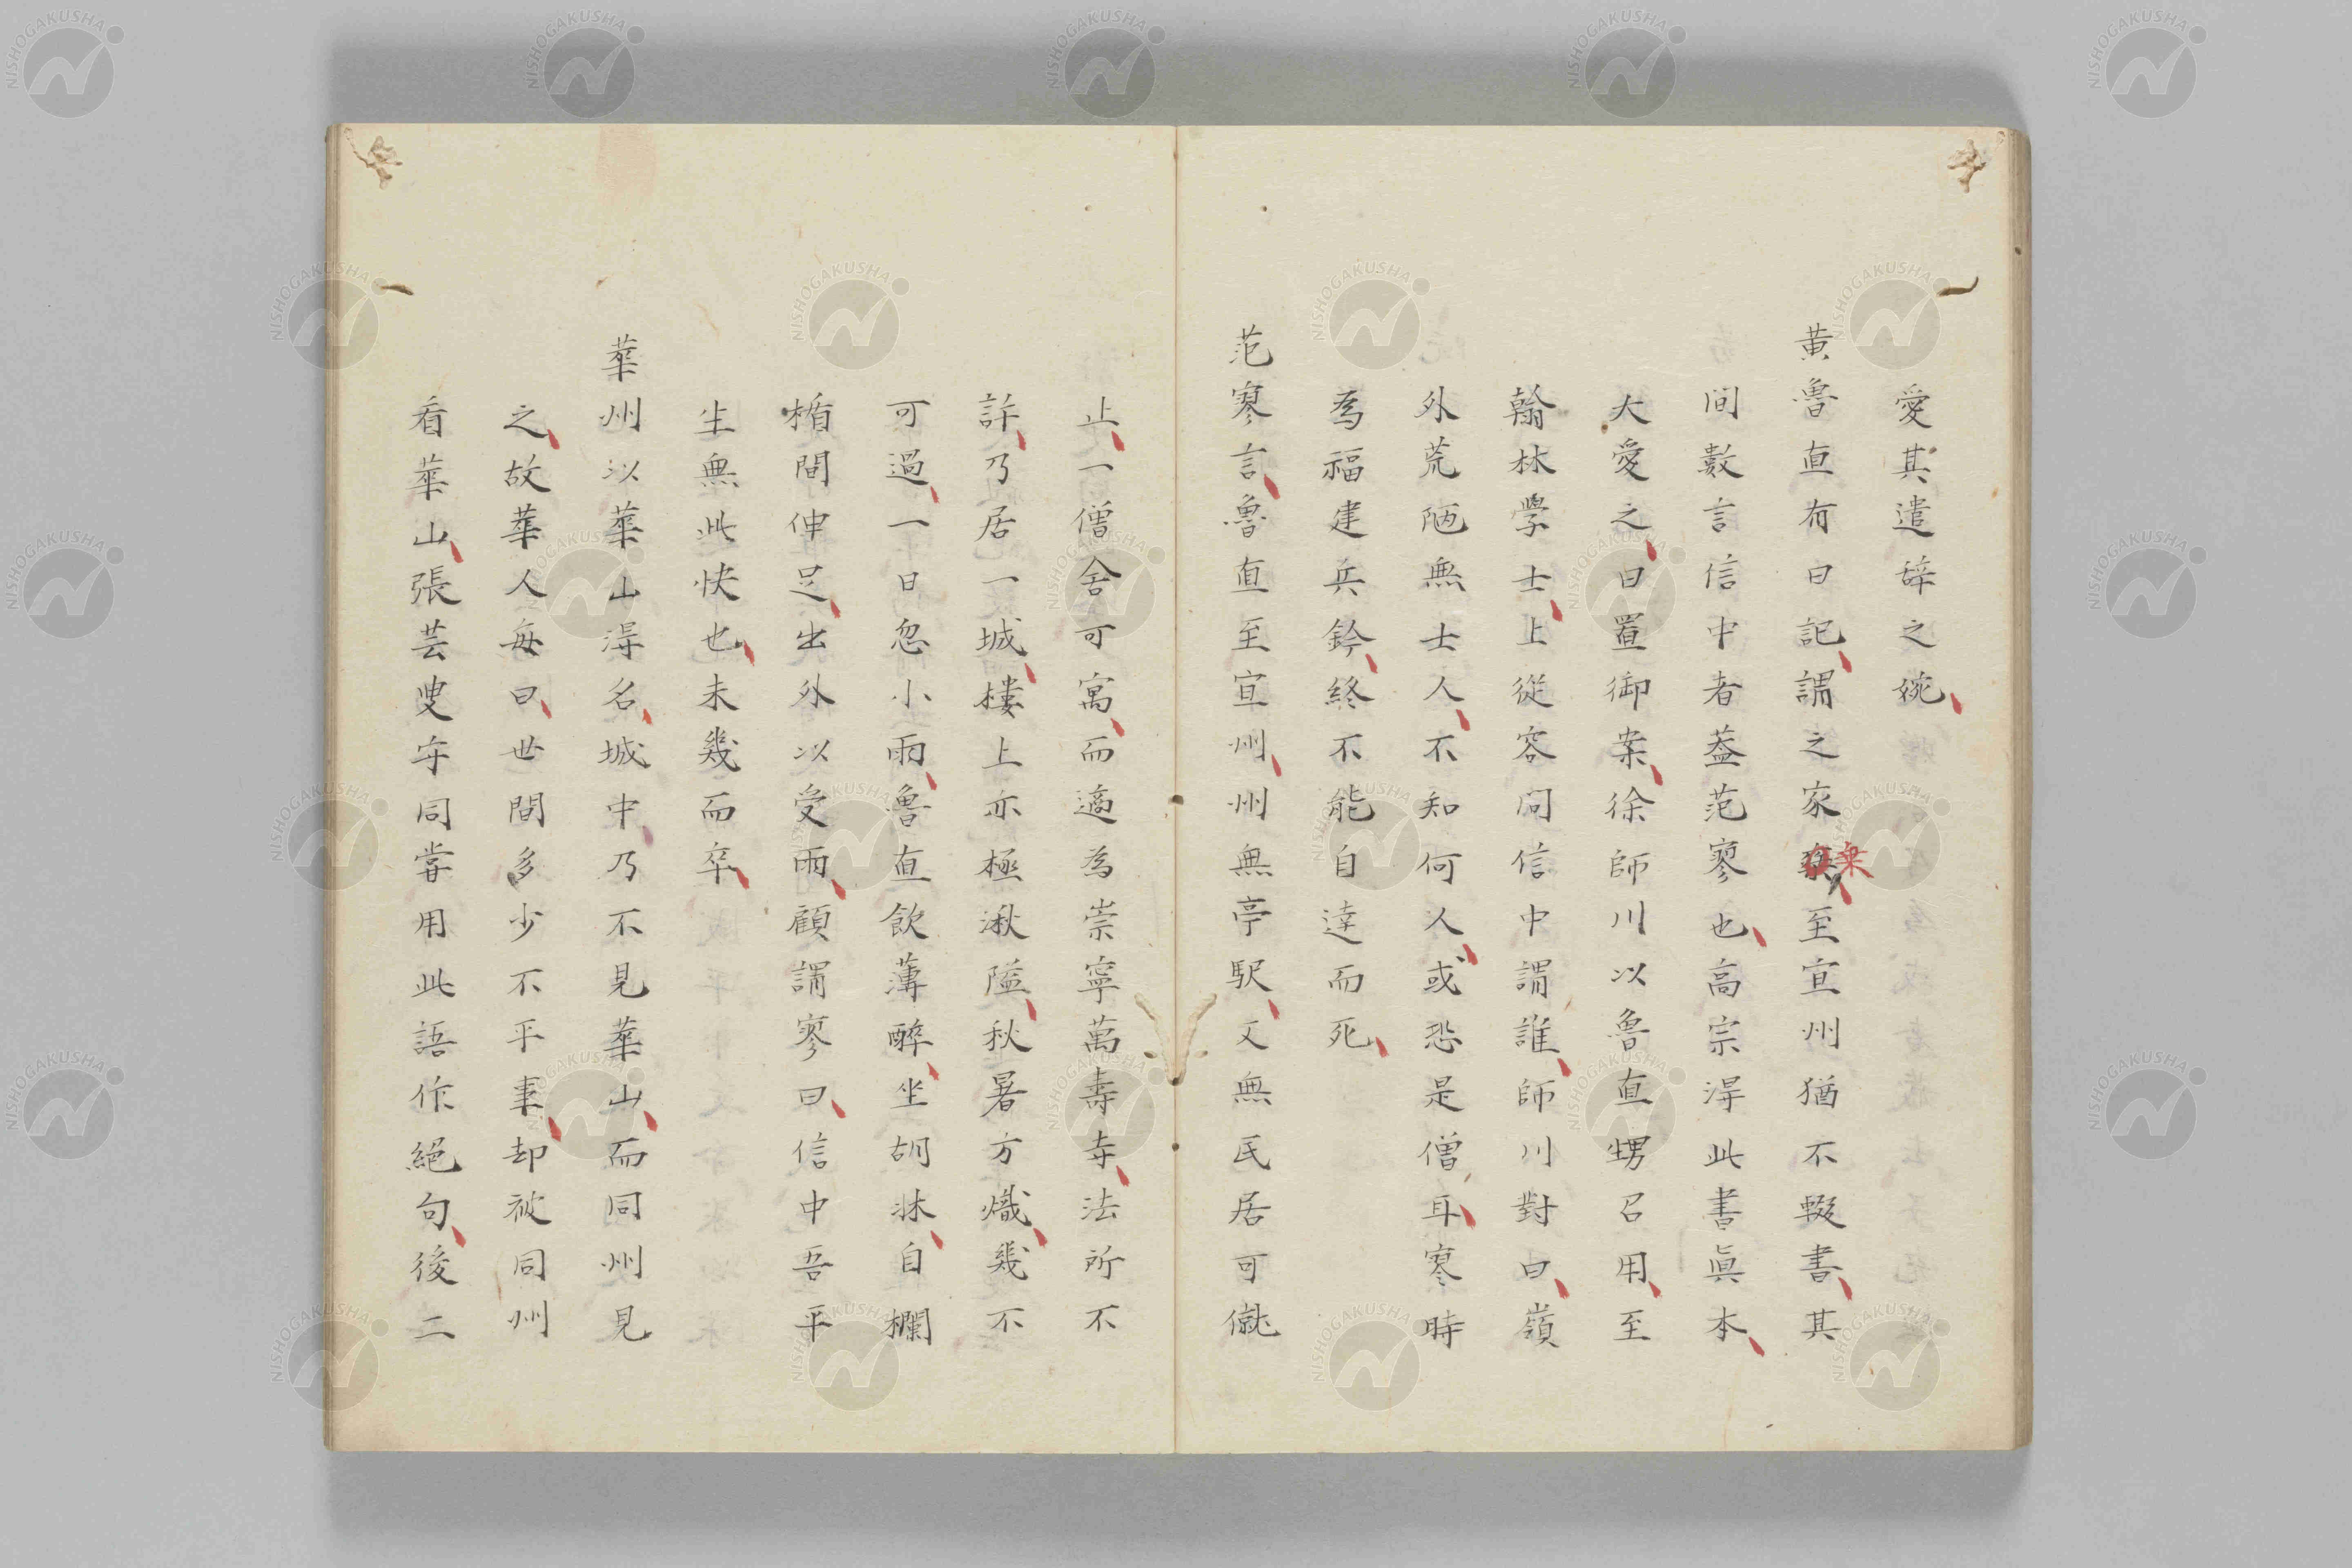 愛其遣辞之婉
黄魯直有日記謂之家乗至宜州猶不輟書其
間數言信中者葢范寥也高宗淂此書眞本
大愛之日置御案徐師川以魯直甥召用至
翰林學士上從容问信中謂誰師川對曰嶺
外荒陋無士人不知何人或恐是僧耳寥時
為福建兵鈐終不能自達而死
范寥言魯直至宜州州無亭駅又無民居可僦
止一僧舍可寓而適為崇寧萬壽寺法所不
許乃居一城樓上亦極湫隘秋暑方熾幾不
可過一日忽小雨魯直飲薄醉坐胡牀自欄
楯間伸足出外以受雨顧謂寥曰信中吾平
生無此快也未幾而卒
華州以華山淂名城中乃不見華山而同州見
之故華人每曰世間多少不平事却被同州
看華山張芸叟守同甞用此語作絕句後二
NISHOGAKUSHA